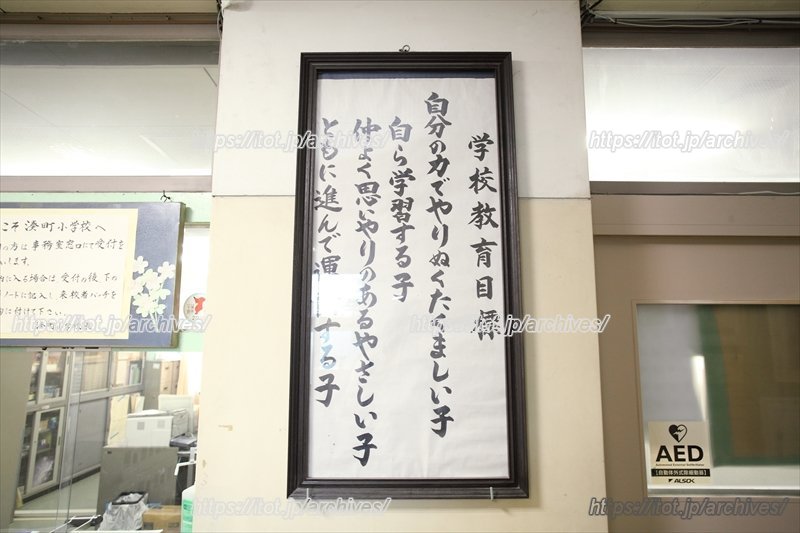 学校教育目標
自分の力でやりぬくたくましい子
自ら学習する子
仲よく思いやりのあるやさしい子
ともに進んで運 する子
こそ 湊町小学校へ
の方は 事務室窓口にて受付を
います。
内に入る場合は 受付の後、下の
ノートに記入し 来校者バッチを
に付けて下さい。
AED
Automated External Defibrillator
[自動体外式除細動器]
ALSOK
https://itot.jp/archives/
https://itot.jp/archives/
https://itot.jp/archives/
https://itot.jp/archives/
https://itot.jp/archives/
https://itot.jp/archives/
https://itot.jp/archives/
https://itot.jp/archives/